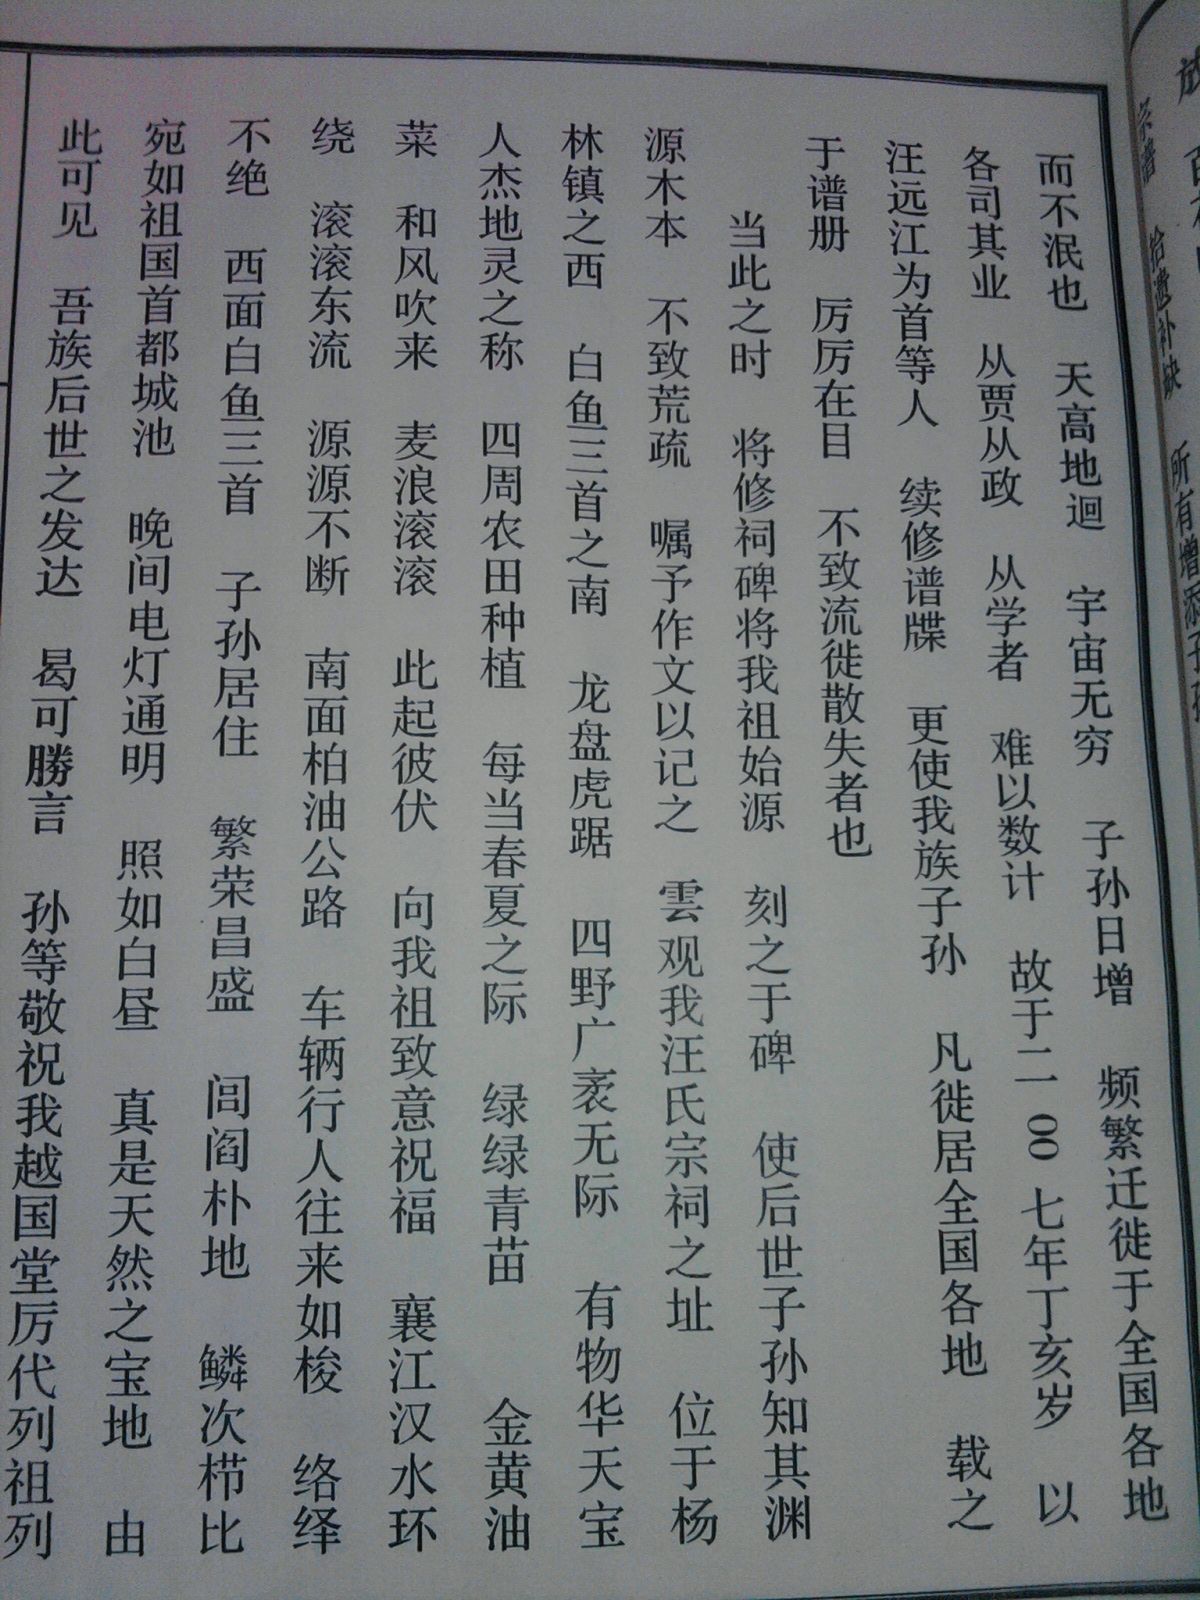 拾遗补缺 所有增添
而不泯也 天高地迥 宇宙无穷 子孙日增 频繁迁徙于全国各地
各司其业 从贾从政 从学者 难以数计 故于二〇〇七年丁亥岁 以
汪远江为首等人 续修谱牒 更使我族子孙 凡徙居全国各地 载之
于谱册 厉厉在目 不致流徙散失者也
当此之时 将修祠碑将我祖始源 刻之于碑 使后世子孙知其渊
源木本 不致荒疏 嘱予作文以记之 雲观我汪氏宗祠之址 位于杨
林镇之西 白鱼三首之南 龙盘虎踞 四野广袤无际 有物华天宝
人杰地灵之称 四周农田种植 每当春夏之际 绿绿青苗 金黄油
菜 和风吹来 麦浪滚滚 此起彼伏 向我祖致意祝福 襄江汉水环
绕 滚滚东流 源源不断 南面柏油公路 车辆行人往来如梭 络绎
不绝 西面白鱼三首 子孙居住 繁荣昌盛 闾阎朴地 鳞次栉比
宛如祖国首都城池 晚间电灯通明 照如白昼 真是天然之宝地 由
此可见 吾族后世之发达 曷可勝言 孙等敬祝我越国堂厉代列祖列